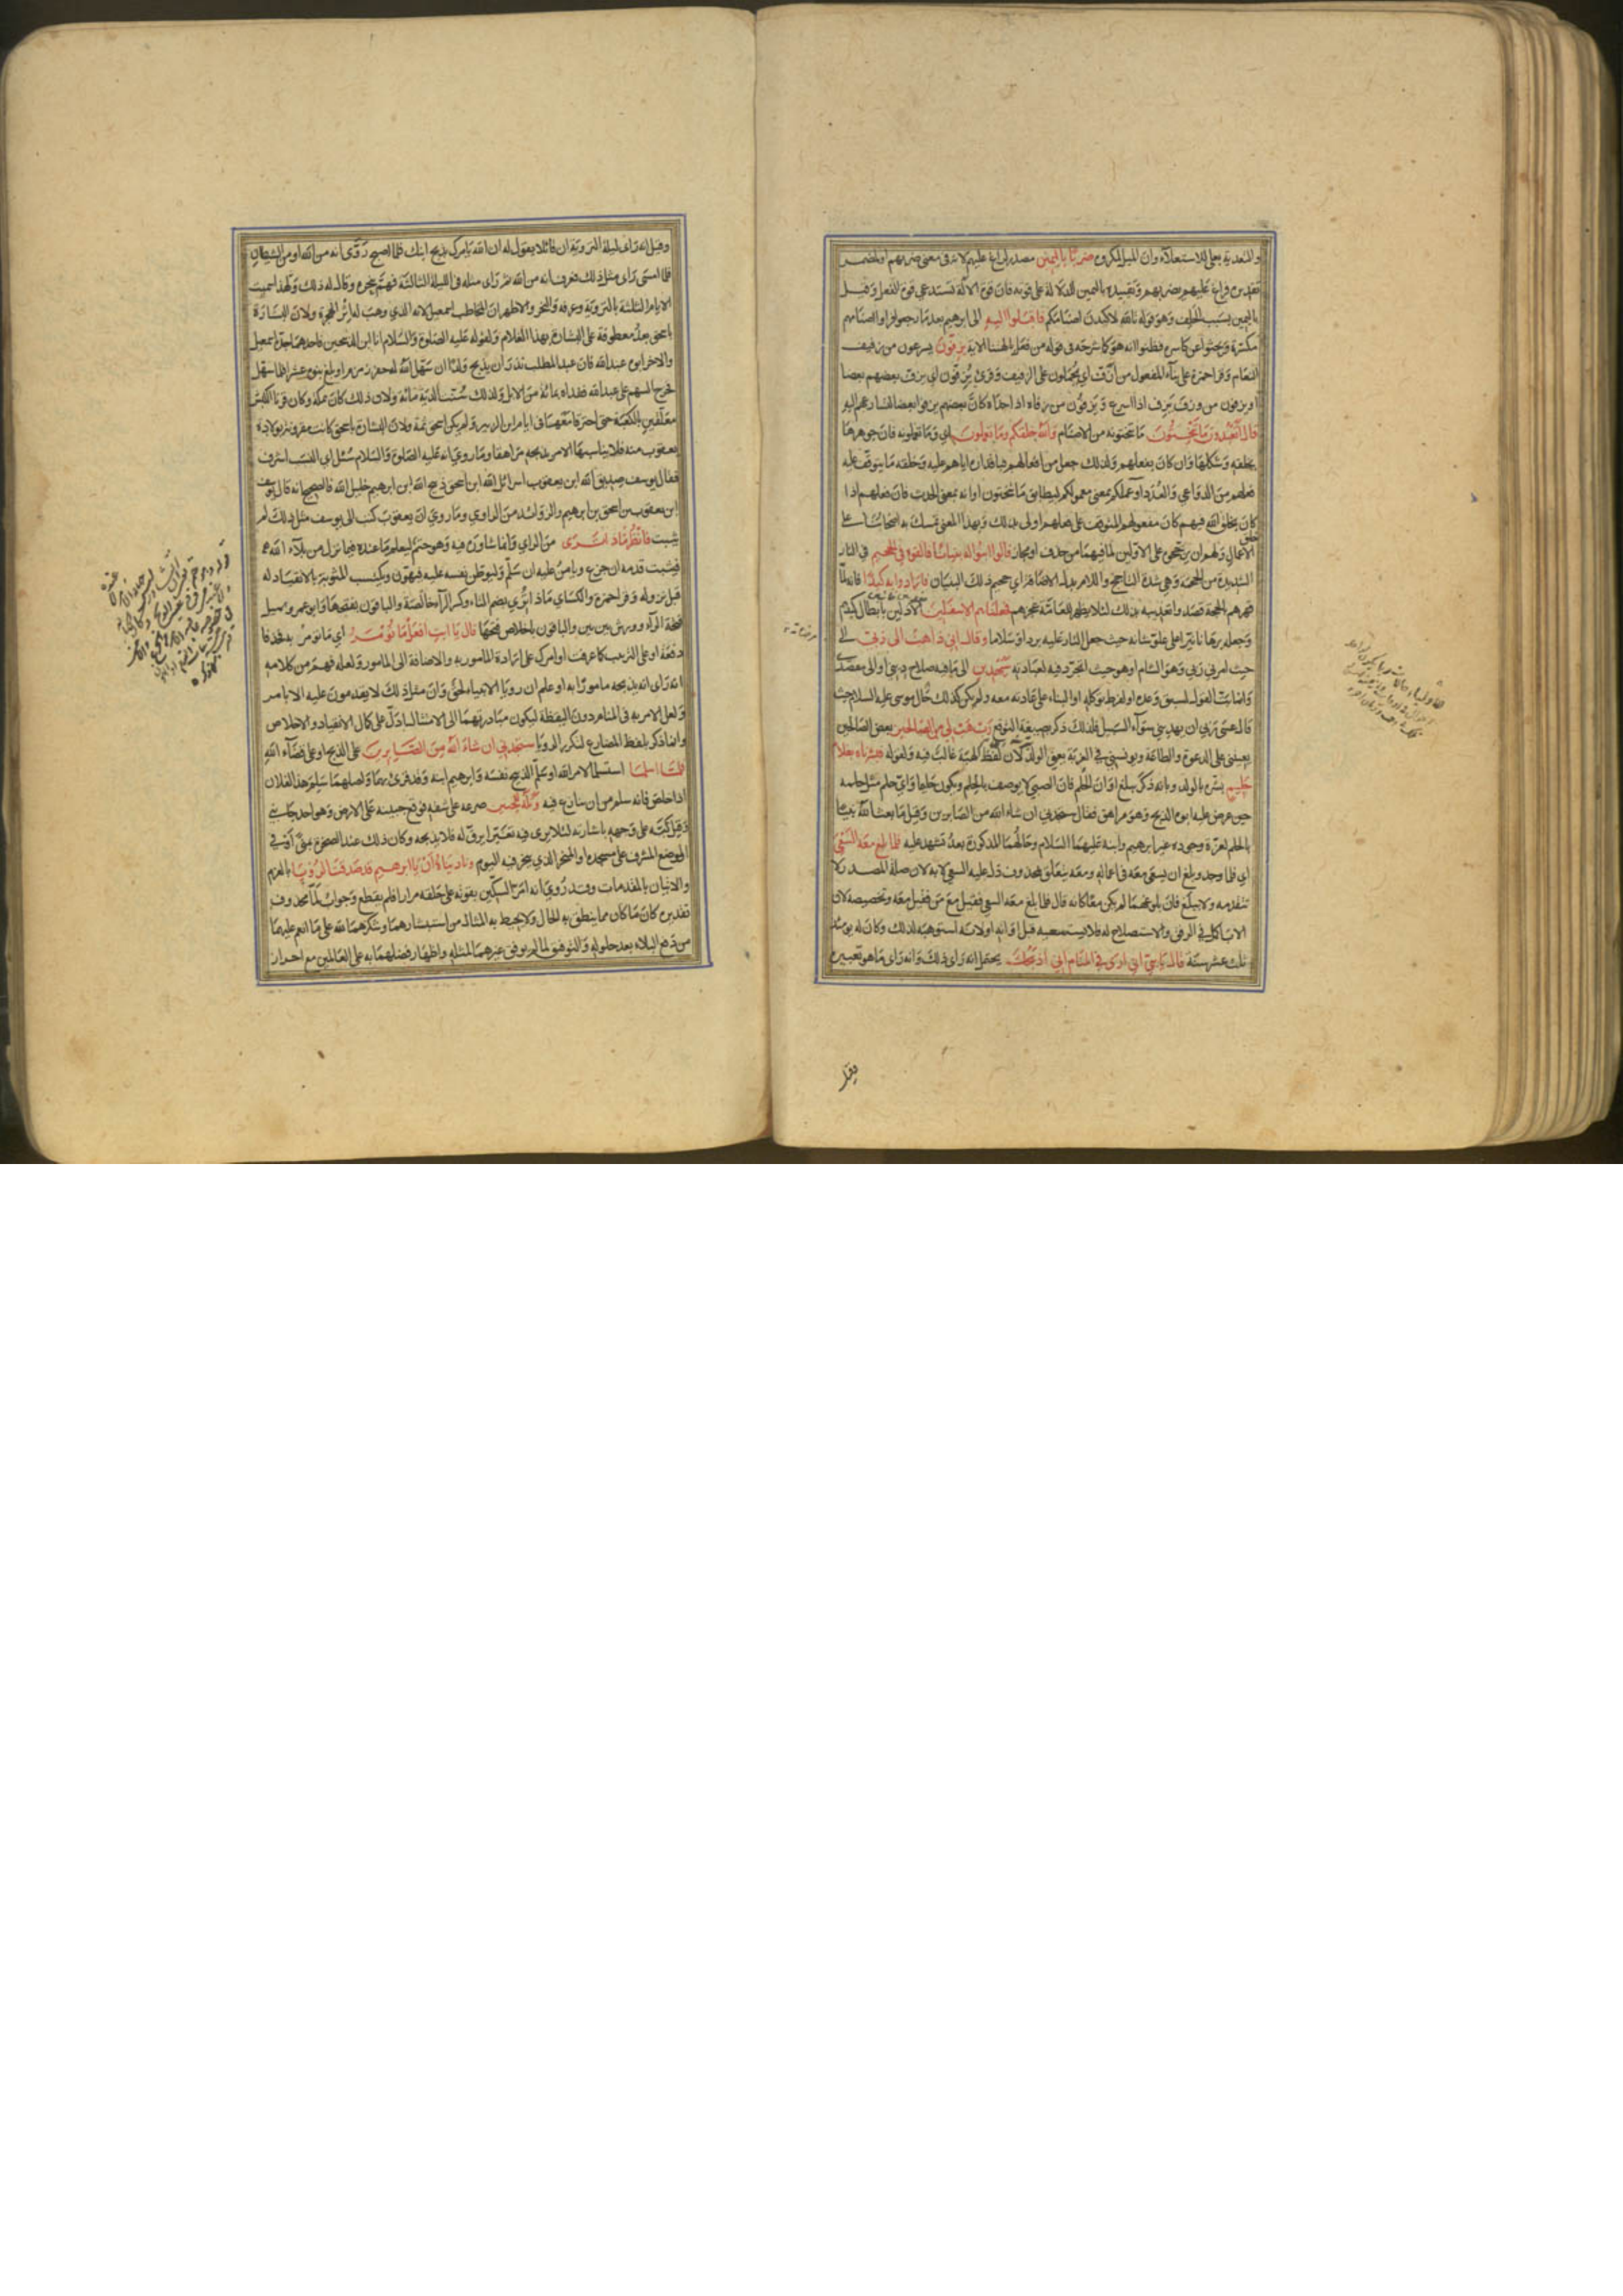 والتعدية بعلى للاستعلاء وان الميل لمكروه ضربا باليمين مصدر لراغ عليهم لانه في معنى ضربهم او لمضمر
تقديره فراغ عليهم يضربهم وتقييده باليمين للدلالة على قوته فان قوة الآلة تستدعي قوة الفعل وقيل
باليمين بسبب الحلف وهو قوله تالله لاكيدن اصنامكم فاقبلوا اليه الى ابرهيم بعد ما رجعوا فراوا اصنامهم
مكسرة وبحثوا عن كاسرها فظنوا انه هو كما شرحه في قوله من فعل هذا بالهتنا الاية يزفون يسرعون من زفيف
النعام وقرا حمزة على بناء المفعول من ازف اي يحملون على الزفيف وقرئ يزفون اي يزف بعضهم بعضا
او يزفون من وزف يزف اذا اسرع ويزفون من زفاه اذا حداه كان بعضهم يزفوا بعضا لتسارعهم اليه
قال اتعبدون ما تنحتون ما تنحتونه من الاصنام والله خلقكم وما تعملون اي وما تعملونه فان جوهرها
بخلقه وشكلها وان كان بفعلهم ولذلك جعل من اعمالهم فباقداره اياهم عليه وخلقه ما يتوقف عليه
فعلهم من الدواعي والعدد او عملكم بمعنى معمولكم ليطابق ما تنحتون او انه بمعنى الحدث فان فعلهم اذا
كان بخلق الله فيهم كان مفعولهم المتوقف على فعلهم اولى بذلك وبهذا المعنى تمسك به اصحابنا على
خلق
الاعمال ولهم ان يرجحوه على الاولين لما فيهما من حذف او مجاز قالوا ابنوا له بنيانا فالقوه في الجحيم في النار
الشديدة من الجحمة وهي شدة التاجج واللام بدل الاضافة اي جحيم ذلك البنيان فارادوا به كيدا فانه لما
قهرهم بالحجة قصدوا تعذيبه بذلك لئلا يظهر للعامة عجزهم فجعلناهم الاسفلين الاذلين بابطال كيدهم
وجعله برهانا نيرا على علو شانه حيث جعل النار عليه بردا وسلاما وقال اني ذاهب الى ربي الى
حيث امرني ربي وهو الشام او حيث اتجرد فيه لعبادته سيهدين الى ما فيه صلاح ديني او الى مقصدي
وانما بت القول لسبق وعده او لفرط توكله او البناء على عادته معه ولم يكن كذلك حال موسى عليه السلام حيث
قال عسى ربي ان يهديني سواء السبيل فلذلك ذكر بصيغة التوقع رب هب لي من الصالحين بعض الصالحين
يعينني على الدعوة والطاعة ويونسني في الغربة يعني الولد لان لفظ الهبة غالب فيه ولقوله فبشرناه بغلام
حليم بشره بالولد وبانه ذكر يبلغ اوان الحلم فان الصبي لا يوصف بالحلم ويكون حليما واي حلم مثل حلمه
حين عرض عليه ابوه الذبح وهو مراهق فقال ستجدني ان شاء الله من الصابرين وقيل ما نعت الله نبيا
بالحلم لعزة وجوده غير ابرهيم وابنه عليهما السلام وحالهما المذكورة بعد تشهد عليه فلما بلغ معه السعي
اي فلما وجد وبلغ ان يسعى معه في اعماله ومعه يتعلق بمحذوف دل عليه السعي لا به لان صلة المصدر لا
تتقدمه ولا ببلغ فان بلوغهما لم يكن معا كانه قال فلما بلغ معه السعي فقيل مع من فقيل معه وتخصيصه لان
الاب اكمل في الرفق والاستصلاح له فلا يستسعيه قبل اوانه او لانه استوهبه لذلك وكان له يومئذ
ثلث عشر سنة قال يا بني اني ارى في المنام اني اذبحك يحتمل انه راى ذلك وانه راى ما هو تعبيره
وقيل
وقيل انه راى ليلة التروية ان قائلا يقول له ان الله يامرك بذبح ابنك فلما اصبح روى انه من الله او من الشيطان
فلما امسى راى مثل ذلك فعرف انه من الله ثم راى مثله في الليلة الثالثة فهم بنحره وقال له ذلك ولهذا سميت
الايام الثلثة بالتروية وعرفة والنحر والاظهر ان المخاطب اسمعيل لانه الذي وهب له اثر الهجرة ولان البشارة
باسحق بعد معطوفة على البشارة بهذا الغلام ولقوله عليه الصلوة والسلام انا ابن الذبيحين فاحدهما جده اسمعيل
والاخر ابوه عبدالله فان عبدالمطلب نذر ان يذبح ولدا ان سهل الله له حفر زمزم او بلغ بنوه عشرا فلما سهل
خرج السهم على عبدالله ففداه بمائة من الابل ولذلك سنت الدية مائة ولان ذلك كان بمكة وكان قرنا الكبش
معلقين بالكعبة حتى احترقا معها في ايام ابن الزبير ولم يكن اسحق ثمة ولان البشارة باسحق كانت مقرونة بولادة
يعقوب منه فلا يناسبها الامر بذبحه مراهقا وما روي انه عليه الصلوة والسلام سئل اي النسب اشرف
فقال يوسف صديق الله ابن يعقوب اسرائل الله ابن اسحق ذبيح الله ابن ابرهيم خليل الله فالصحيح انه قال يوسف
ابن يعقوب بن اسحق بن ابرهيم والزوائد من الراوي وما روي ان يعقوب كتب الى يوسف مثل ذلك لم
يثبت فانظر ماذا ترى من الراي وانما شاوره فيه وهو حتم ليعلم ما عنده فيما نزل من بلاء الله
فيثبت قدمه ان جزع ويامن عليه ان سلم وليوطن نفسه عليه فيهون ويكتسب المثوبة بالانقياد له
قبل نزوله وقرا حمزة والكسائي ماذا تري بضم التاء وكسر الراء خالصة والباقون بفتحها وابو عمرو يميل
فتحة الراء وورش بين بين والباقون باخلاص فتحها قال يا ابت افعل ما تؤمر اي ما تومر به فحذفا
دفعة او على الترتيب كما عرفت او امرك على ارادة المامور به والاضافة الى المامور ولعله فهم من كلامه
انه راى انه يذبحه مامورا به او علم ان رويا الانبياء حق وان مثل ذلك لا يقدمون عليه الا بامر
ولعل الامر به في المنام دون اليقظة ليكون مبادرتهما الى الامتثال ادل على كمال الانقياد والاخلاص
وانما ذكر بلفظ المضارع لتكرر الرويا ستجدني ان شاء الله من الصابرين على الذبح او على قضاء الله
فلما اسلما استسلما لامر الله او سلم الذبيح نفسه وابرهيم ابنه وقد قرئ بهما واصلهما سلم هذا لفلان
اذا خلص له فانه سلم من ان ينازع فيه وتله للجبين صرعه على شقه فوقع جبينه على الارض وهو احد جانبي
وقيل كبه على وجهه باشارته لئلا يرى فيه تغيرا يرق له فلا يذبحه وكان ذلك عند الصخرة بمنى او في
الموضع المشرف على مسجده او المنحر الذي ينحر فيه اليوم وناديناه ان يا ابرهيم قد صدقت الرؤيا بالعزم
والاتيان بالمقدمات وقد روي انه امر السكين بقوته على حلقه مرارا فلم يقطع وجواب لما محذوف
تقديره كان ما كان مما ينطق به الحال ولا يحيط به المقال من استبشارهما وشكرهما لله على ما انعم عليهما
من دفع البلاء بعد حلوله والتوفيق لما لم يوفق غيرهما لمثله واظهار فضلهما به على العالمين مع احراز